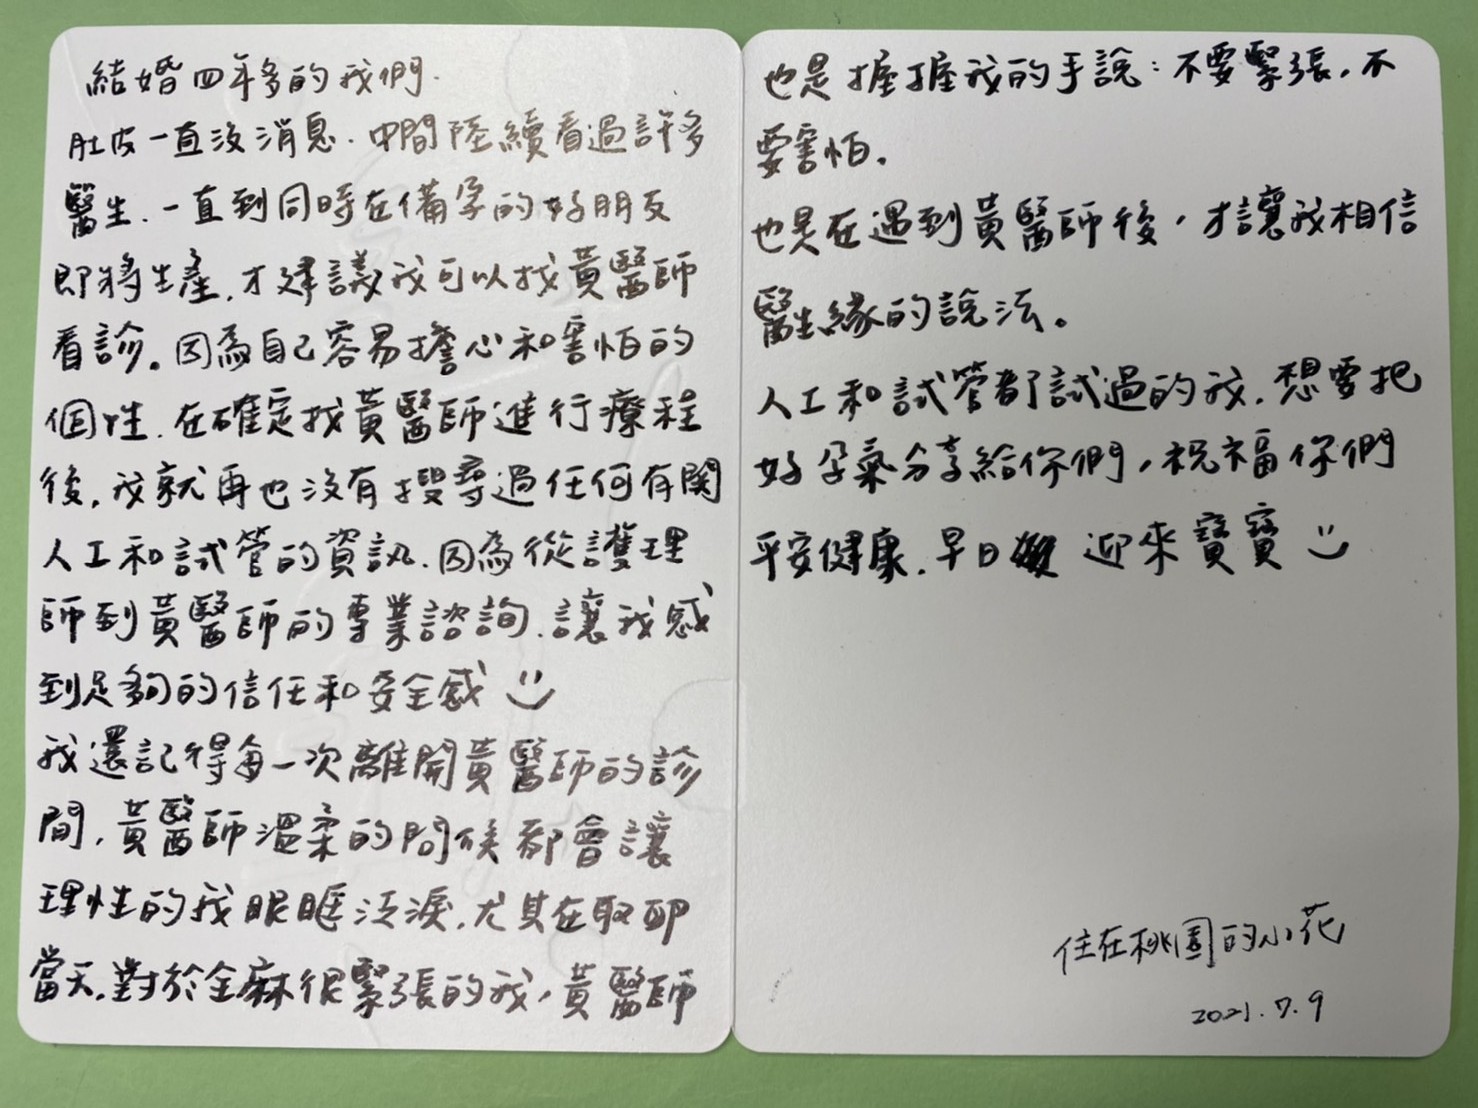 結婚四年多的我們.
肚皮一直沒消息.中間陸續看過許多
醫生.一直到同時在備孕的好朋友
即將生產.才建議我可以找黃醫師
看診。因為自己容易擔心和害怕的
個性.在確定找黃醫師進行療程
後.我就再也沒有搜尋過任何有關
人工和試管的資訊.因為從護理
師到黃醫師的專業諮詢.讓我感
到足夠的信任和安全感 :)
我還記得每一次離開黃醫師的診
間,黃醫師溫柔的問候都會讓
理性的我眼眶泛淚.尤其在取卵
當天.對於全麻很緊張的我,黃醫師
也是握握我的手說:不要緊張.不
要害怕。
也是在遇到黃醫師後,才讓我相信
醫生緣的說法。
人工和試管都試過的我.想要把
好孕氣分享給你們,祝福你們
平安健康.早日 迎來寶寶 :)
住在桃園的小花
2021.7.9